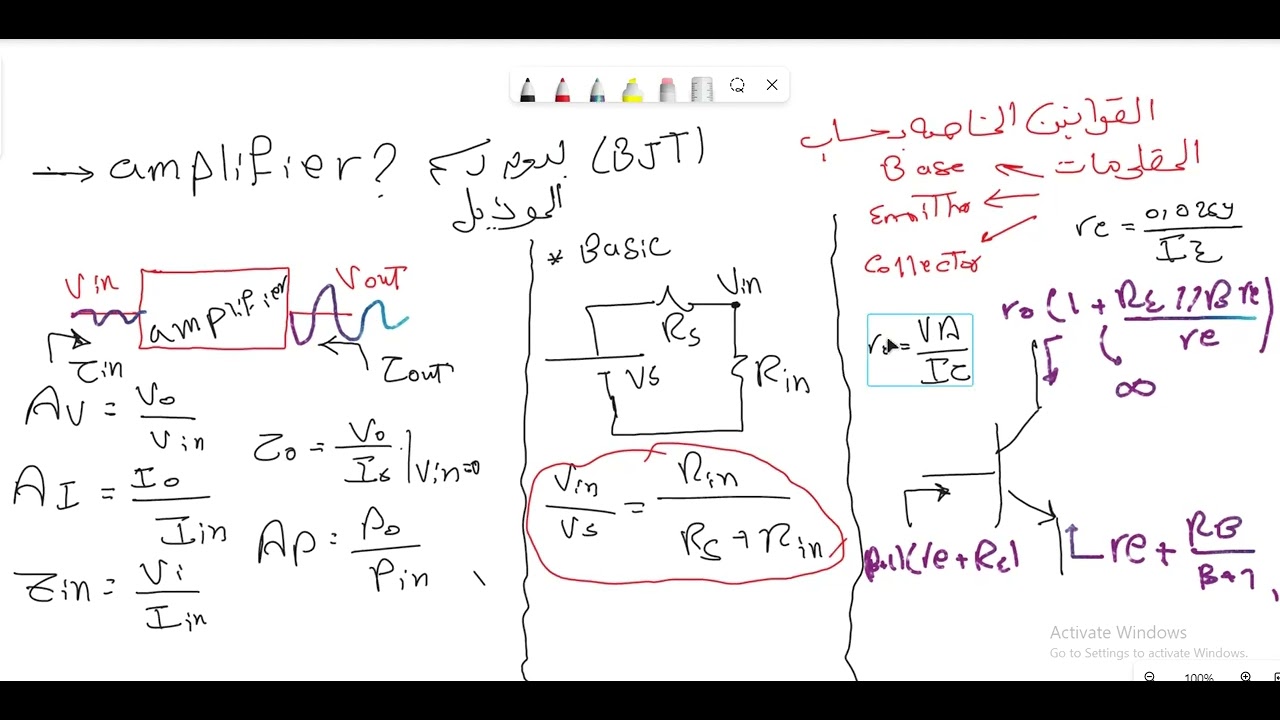 → amplifier? (BJT)
الموديل
Vin
amplifier
Vout
Zin
Zout
AV = Vo / Vin
AI = Io / Iin
Zin = Vi / Iin
Zo = Vo / Io | Vin=0
Ap = Po / Pin
* Basic
Vin
Rs
Vs
Rin
Vin / Vs = Rin / Rs + Rin
القوانين الخاصه بحساب
المقاومات
Base
Emitter
Collector
re = 0,026V / IE
ro = VA / IC
ro (1 + RE // B re / re)
∞
(re + RE)
re + RB / B+1
Activate Windows
Go to Settings to activate Windows.
100%